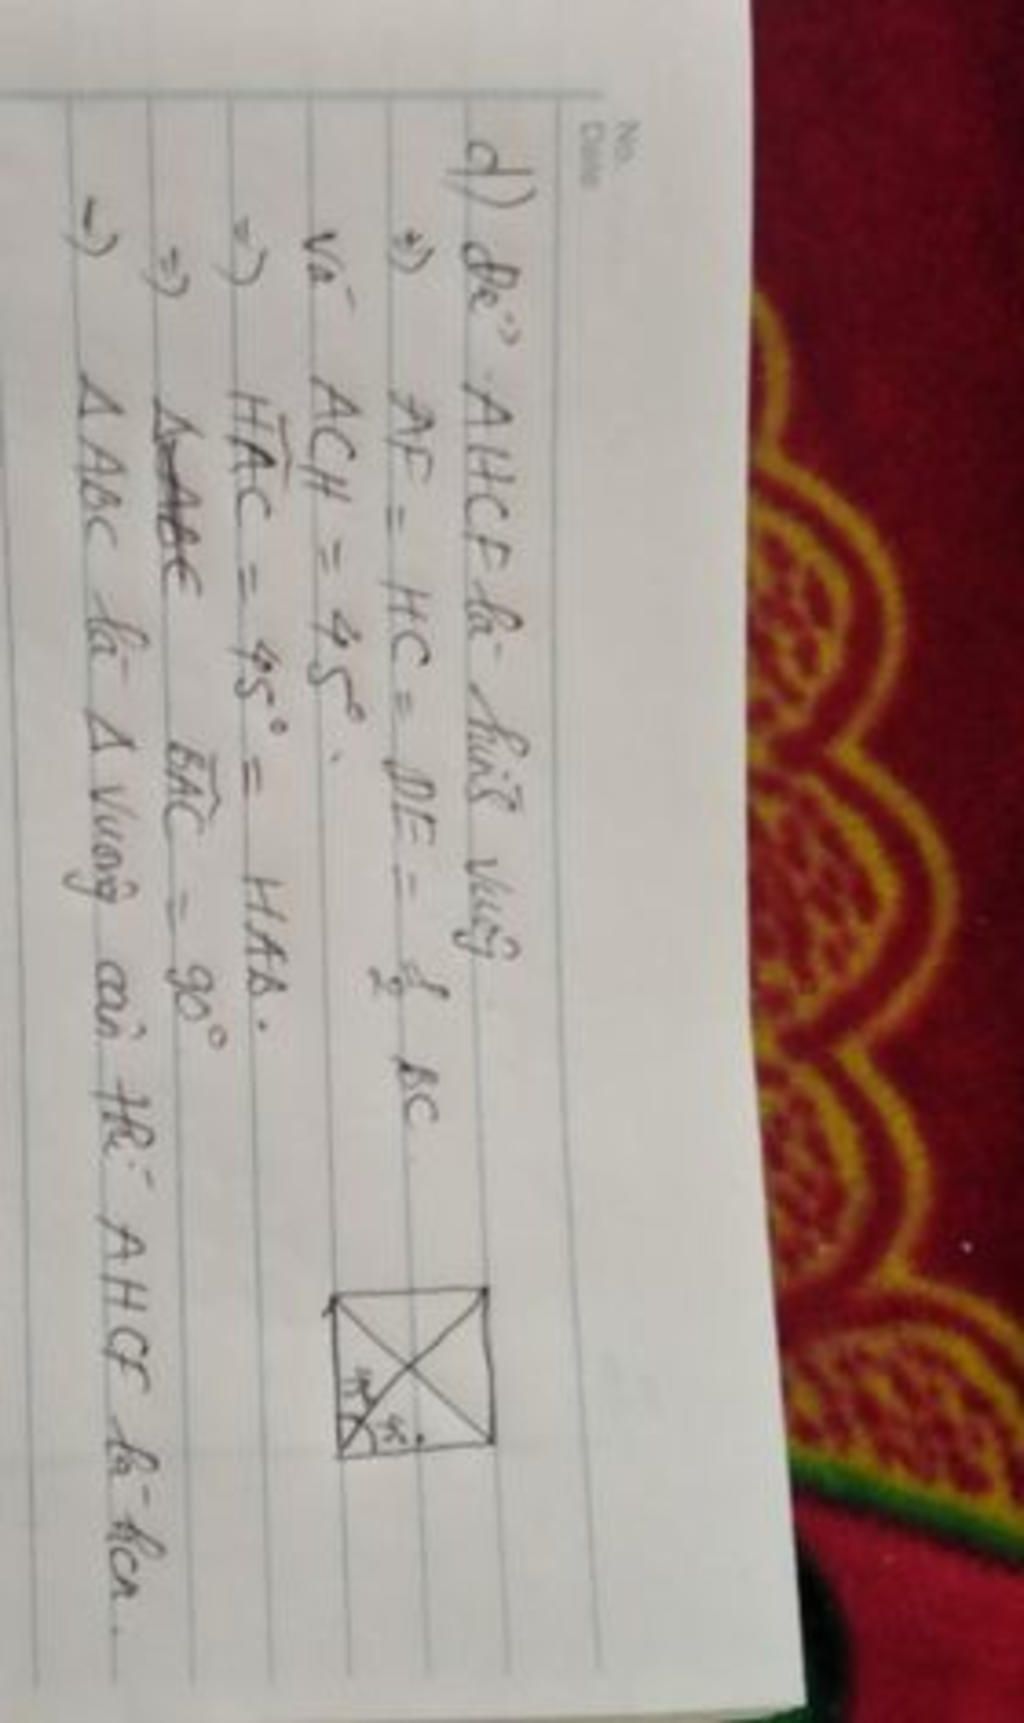 No.
Date
d) Để AHCF là hình vuông
=) AF = HC = DE = 1/2 BC
Và ACH = 45°.
=) HAC = 45° = HAB.
=) BAC = 90°
=) Δ ABC là Δ vuông cân thì AHCF là hcn.
45° 45°